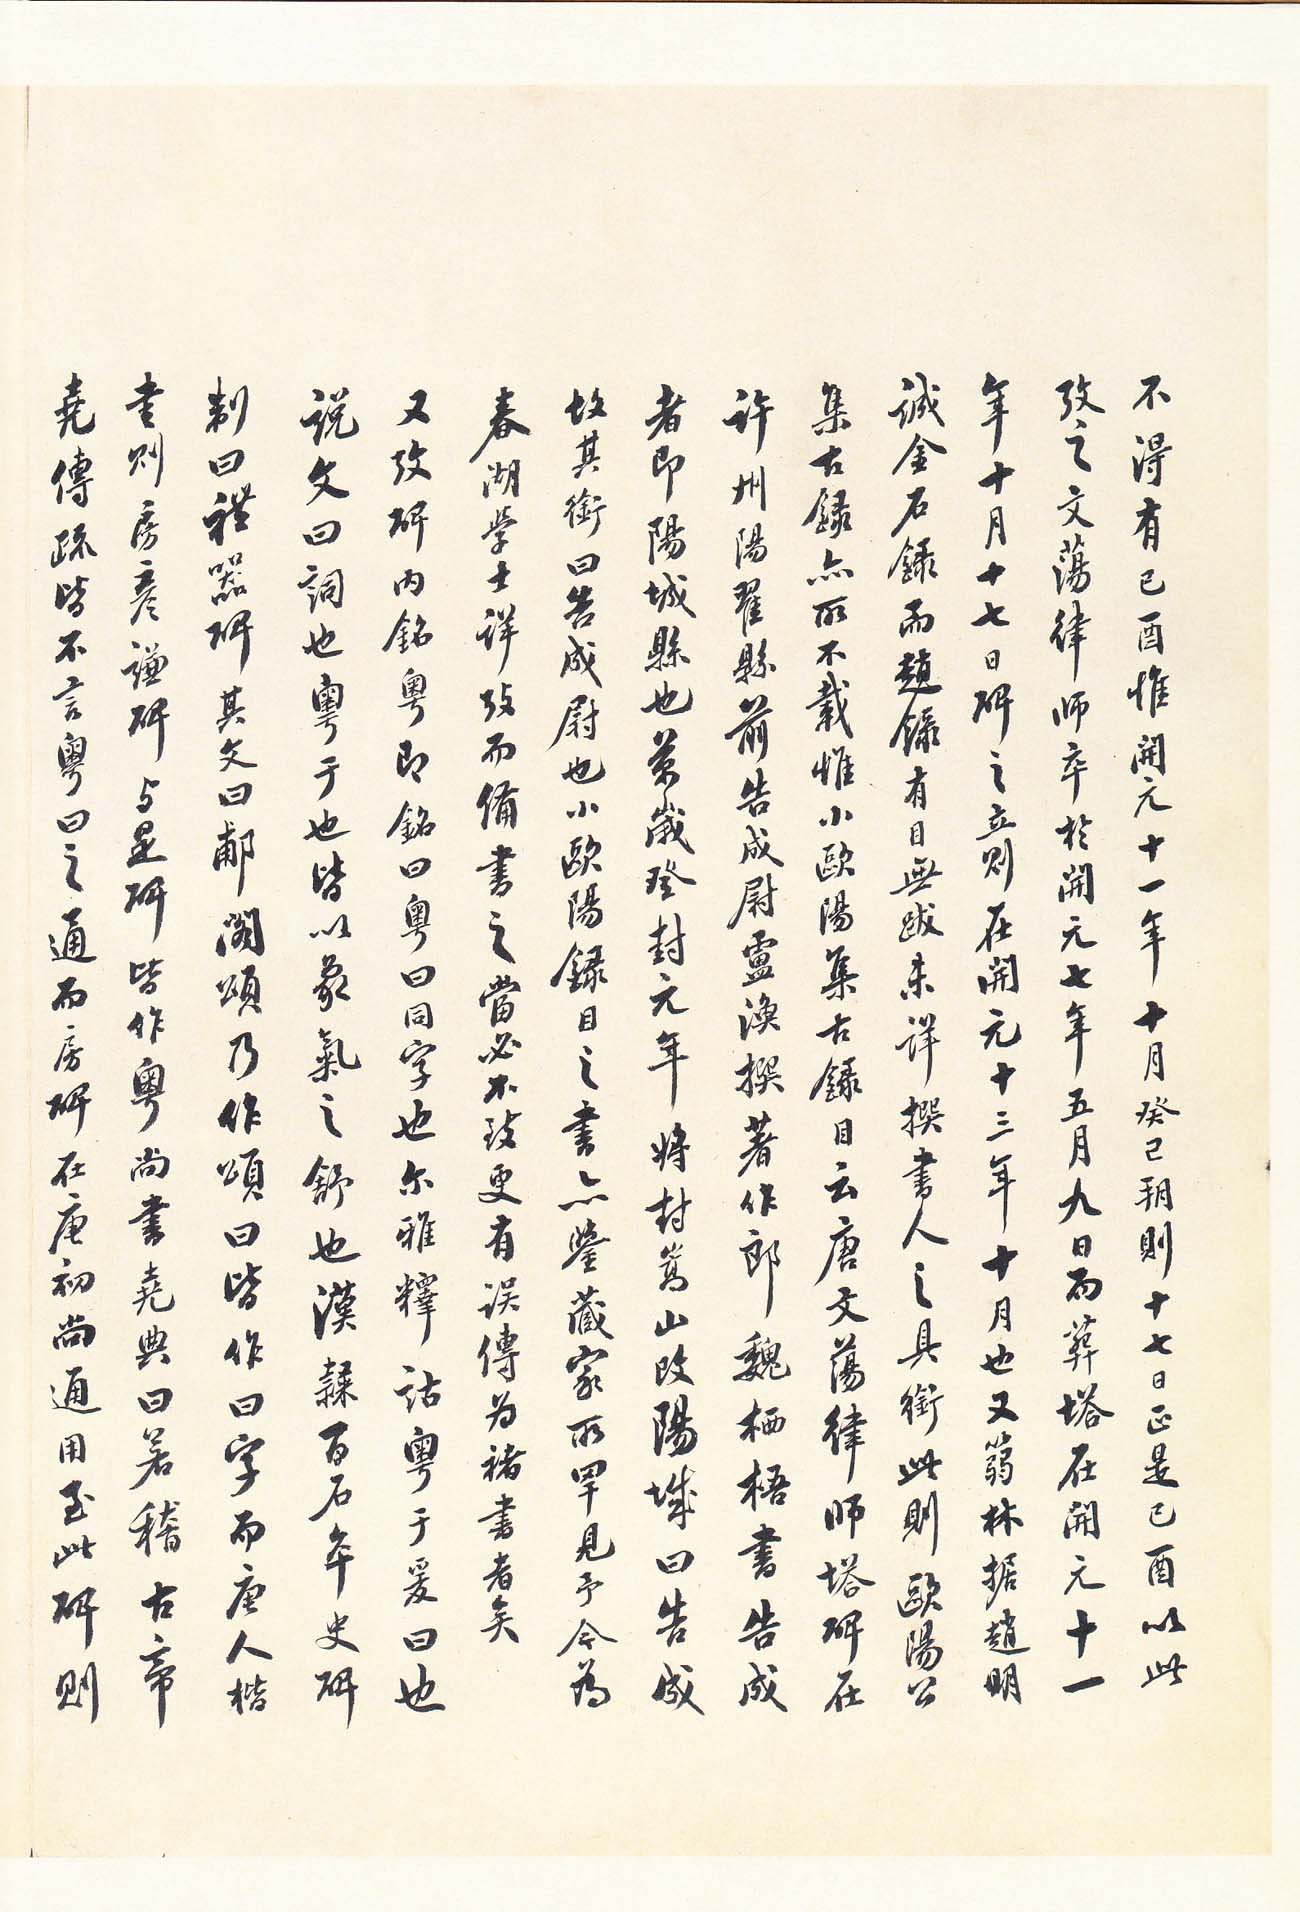 不得有己酉惟開元十一年十月癸巳朔則十七日正是己酉以此
攷之文蕩律師卒於開元七年五月九日而葬塔在開元十一
年十月十七日碑之立則在開元十三年十月也又蒻林据趙明
誠金石録而趙録有目無跋未詳撰書人之具銜此則歐陽公
集古録亦所不載惟小歐陽集古録目云唐文蕩律師塔碑在
許州陽翟縣前告成尉盧渙撰著作郎魏栖梧書告成
者即陽城縣也萬歲登封元年將封嵩山改陽城曰告成
故其銜曰告成尉也小歐陽録目之書亦鑒藏家所罕見予今為
春湖學士詳攷而備書之當必不致更有误傳为褚書者矣
又攷碑内銘粤即銘曰粤曰同字也尔雅釋詁粤于爰曰也
説文曰詞也粤于也皆以象氣之舒也漢隷百石卒史碑
制曰禮器碑其文曰郙閣頌乃作頌曰皆作曰字而唐人楷
書則房彦謙碑与是碑皆作粤尚書堯典曰若稽古帝
堯傳疏皆不言粤曰之通而房碑在唐初尚通用至此碑則